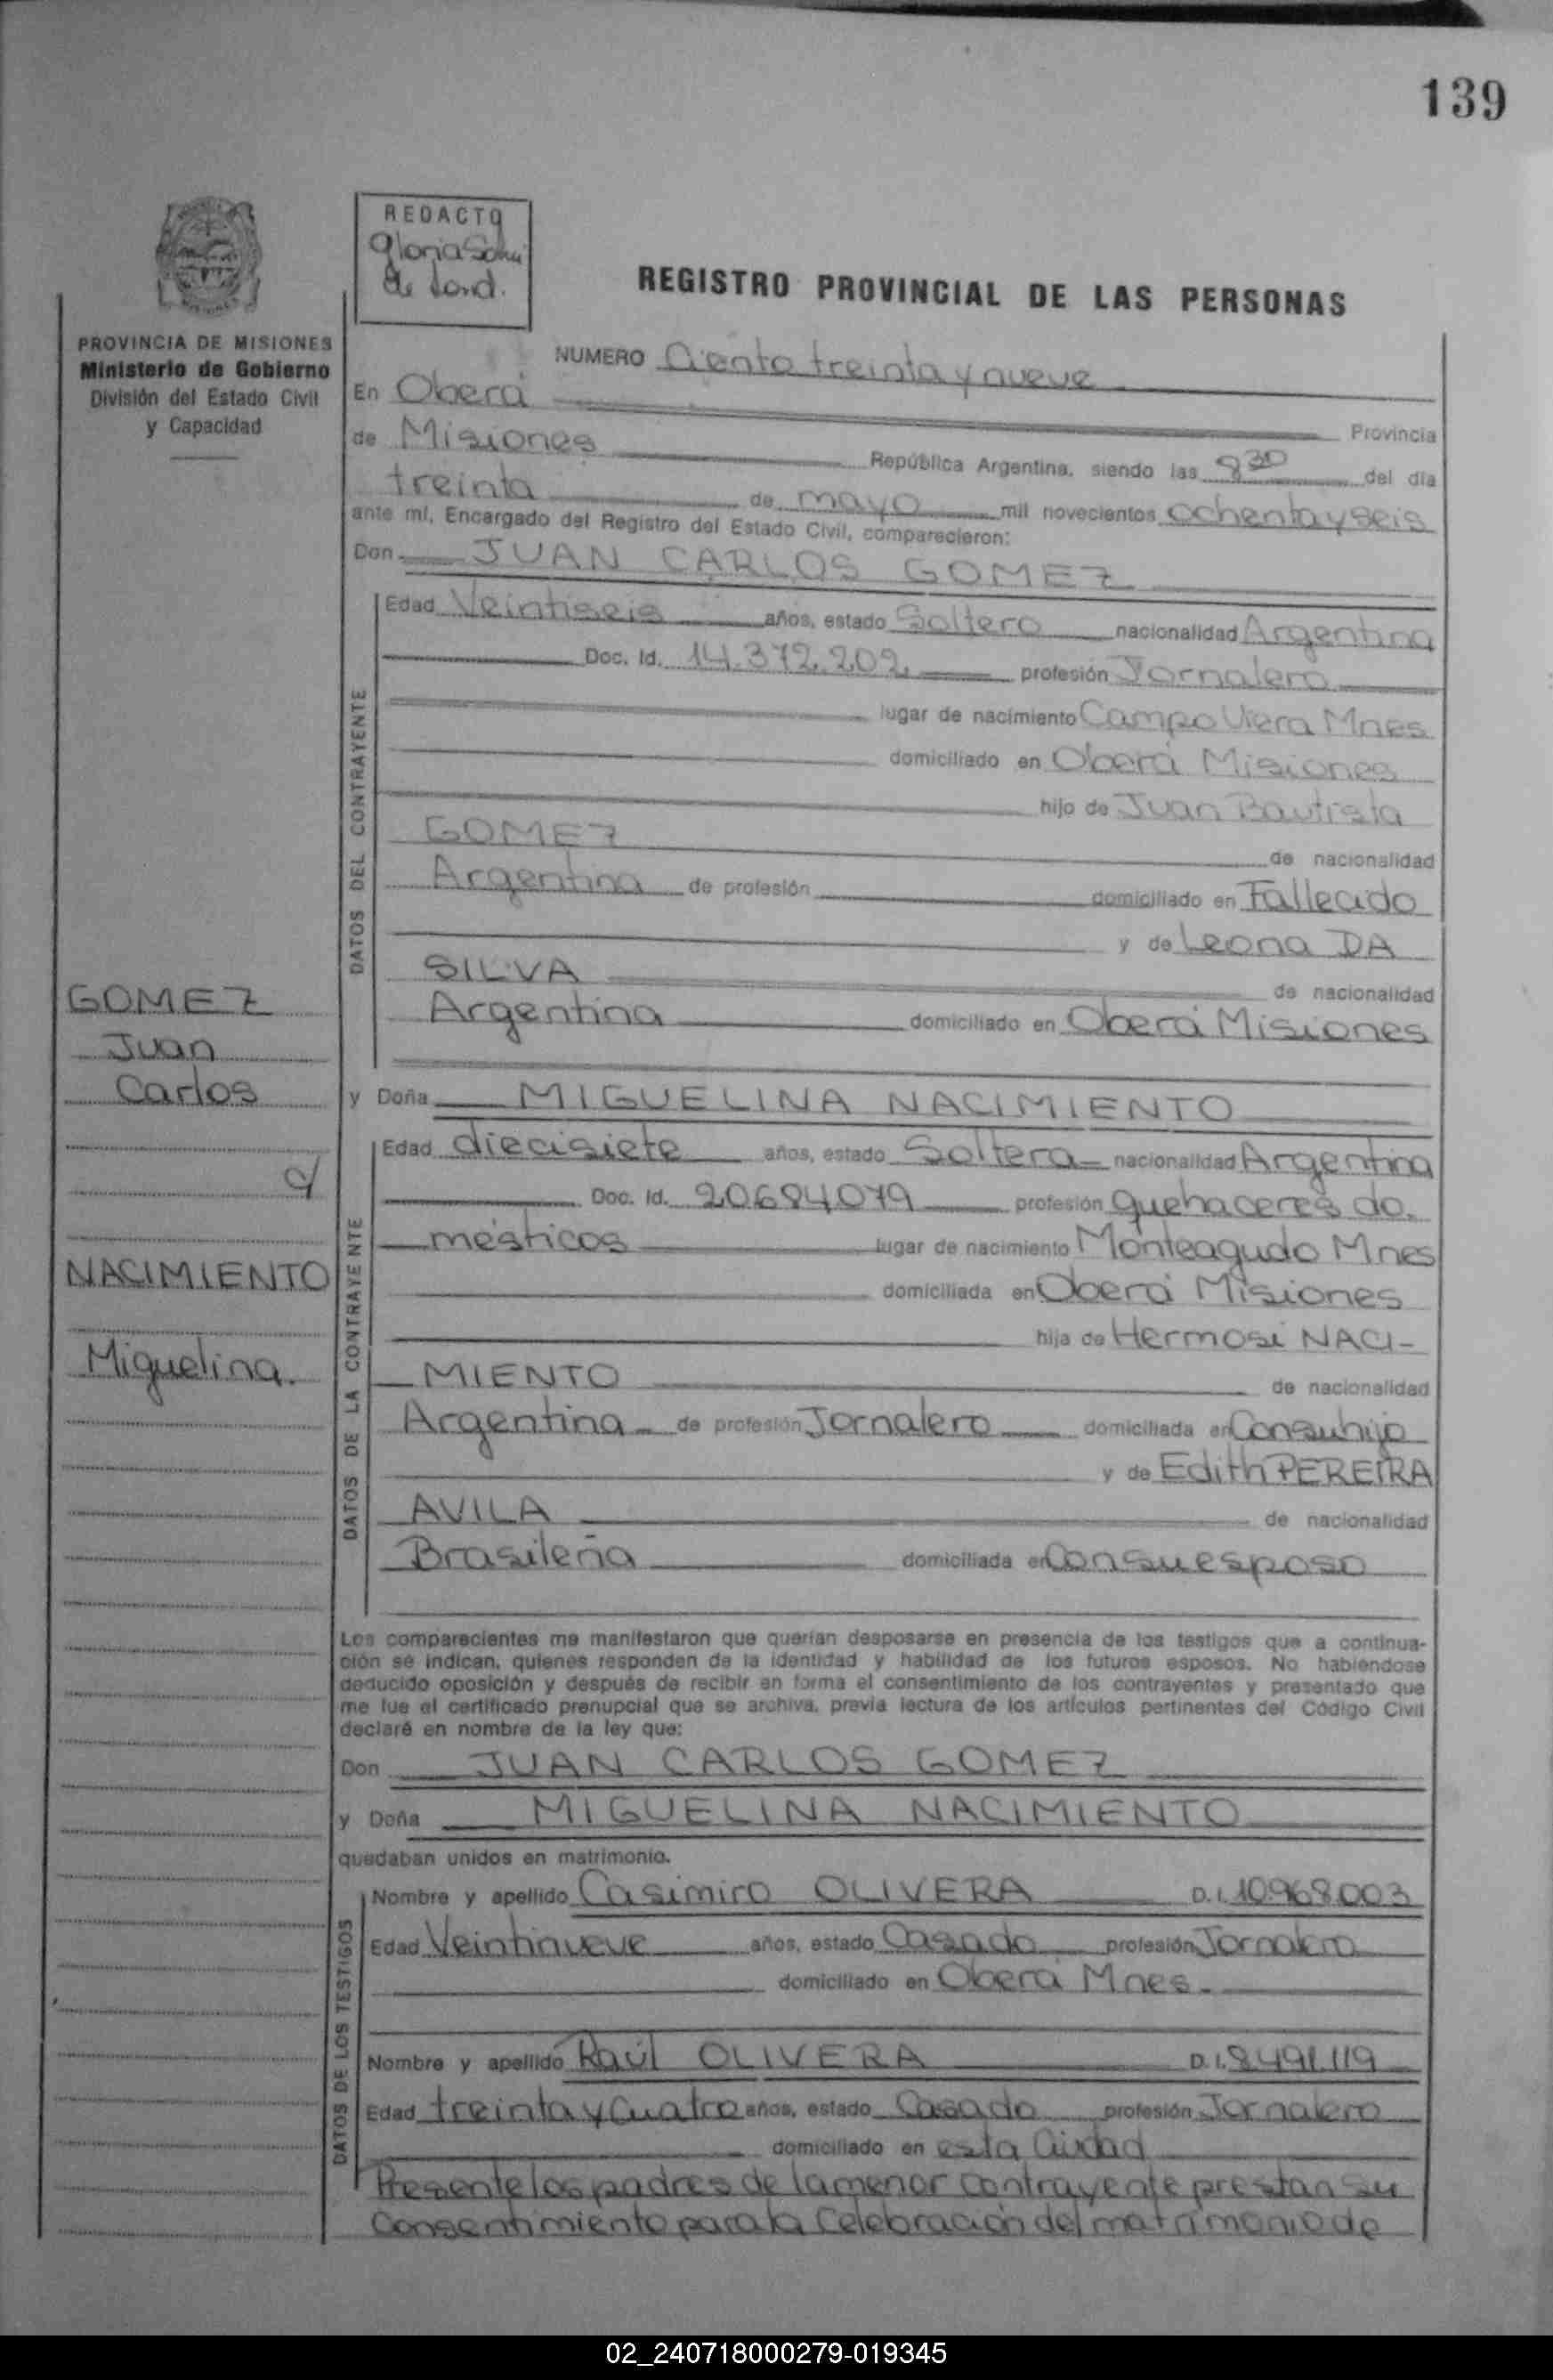 139
REDACTO
Gloria
de
REGISTRO PROVINCIAL DE LAS PERSONAS
PROVINCIA DE MISIONES
Ministerio de Gobierno
División del Estado Civil
y Capacidad
NUMERO Ciento treinta y nueve
En Oberá Provincia
de Misiones República Argentina, siendo las 8 30 del día
treinta de mayo mil novecientos ochenta y seis
ante mí, Encargado del Registro del Estado Civil, comparecieron:
Don JUAN CARLOS GOMEZ
DATOS DEL CONTRAYENTE
Edad Veintiseis años, estado Soltero nacionalidad Argentina
Doc. Id. 14.372.202 profesión Jornalero
lugar de nacimiento Campo Viera Mnes
domiciliado en Oberá Misiones
hijo de Juan Bautista
GOMEZ de nacionalidad
Argentina de profesión domiciliado en Fallecido
y de Leona DA
SILVA de nacionalidad
Argentina domiciliado en Oberá Misiones
GOMEZ
Juan
Carlos
c/
NACIMIENTO
Miguelina.
y Doña MIGUELINA NACIMIENTO
DATOS DE LA CONTRAYENTE
Edad diecisiete años, estado Soltera nacionalidad Argentina
Doc. Id. 20684079 profesión Quehaceres do.
mésticos lugar de nacimiento Monteagudo Mnes
domiciliada en Oberá Misiones
hija de Hermosi NACI-
MIENTO de nacionalidad
Argentina de profesión Jornalero domiciliada en Con su hija
y de Edith PEREIRA
AVILA de nacionalidad
Brasileña domiciliada en Con su esposo
Los comparecientes me manifestaron que querían desposarse en presencia de los testigos que a continua-
ción se indican, quienes responden de la identidad y habilidad de los futuros esposos. No habiendose
deducido oposición y después de recibir en forma el consentimiento de los contrayentes y presentado que
me fue el certificado prenupcial que se archiva, previa lectura de los artículos pertinentes del Código Civil
declaré en nombre de la ley que:
Don JUAN CARLOS GOMEZ
y Doña MIGUELINA NACIMIENTO
quedaban unidos en matrimonio.
DATOS DE LOS TESTIGOS
Nombre y apellido Casimiro OLIVERA D.I. 10.968.003
Edad Veintinueve años, estado Casado profesión Jornalero
domiciliado en Oberá Mnes.
Nombre y apellido Raúl OLIVERA D.I. 8.491.119
Edad treinta y cuatro años, estado Casado profesión Jornalero
domiciliado en esta Ciudad
Presente los padres de la menor contrayente prestan su
Consentimiento para la Celebración del matrimonio de
02_240718000279-019345